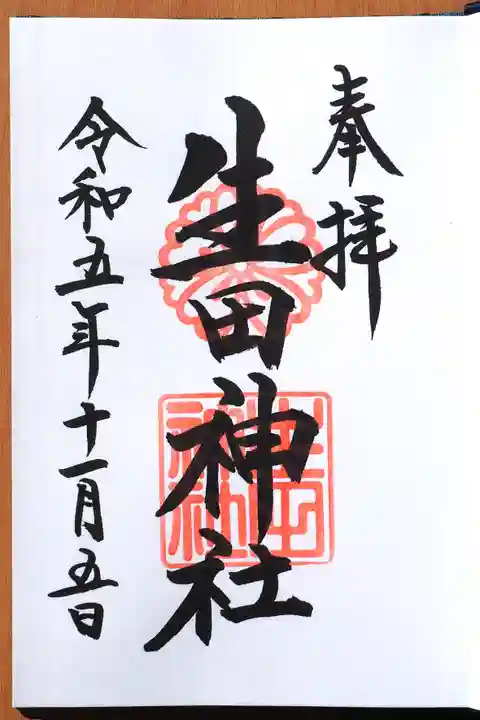 奉拝
生田神社
令和五年十一月五日
生田神社